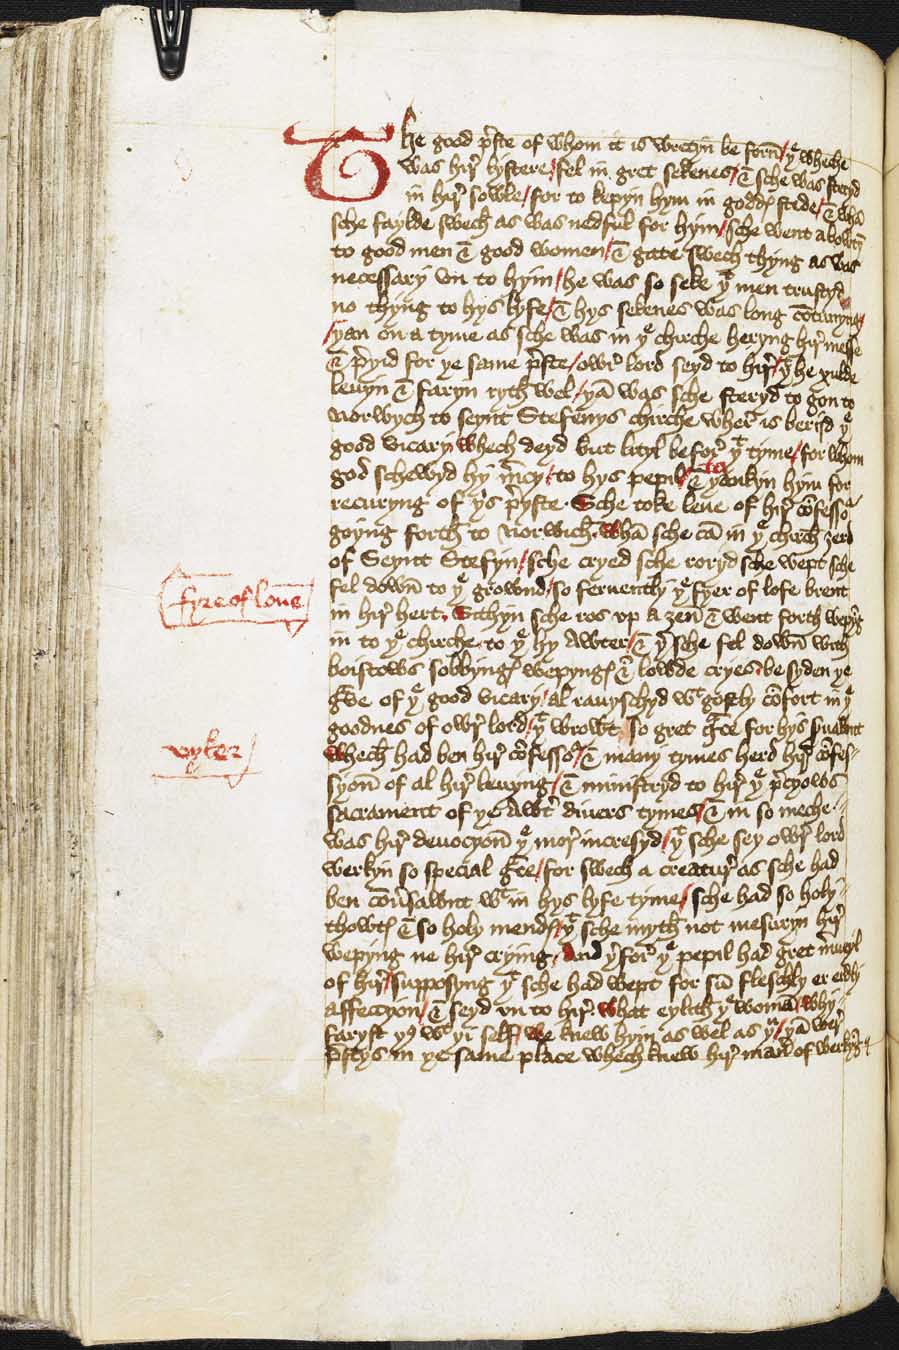 The good pʳste of whom it is wretyn be forn̄ / yᵉ wheche
was hir̛ lystere / fel in gret sekenes / & sche was steryd
in hir̛ sowle / for to kepyn hym in goddꝭ stede / & whā
sche faylde swech as was nedful for hym / sche went abowtyn̄
to good men & good women / & gate swech thyng as was
necessary vn to hym / he was so seke yᵗ men trustyd
no thyng to hys lyfe / & hys sekenes was long cōtinuyng /
/ yan on a tyme as sche was in yᵉ chirche heryng hir̛ messe
& pʳyid for ye same pʳste / owr̛ lord seyd to hir̛ / yᵗ he xulde
leuyn & faryn ryth wel / yā was sche steryd to gon to
Norwych to seynt Stefenys chirche wher̛ is beriyd yᵉ
good vicary whech deyd but lityl befor̛ yᵗ tyme / for whom
god schewyd hy mʳcy / to hys pepil / & to yankyn hym for
recuryng of yⁱs pʳyste. Sche toke leue of hir̛ cōfessoʳ
goyng forth to Norwich. Whā sche cā in yᵉ chirch ȝerd
of Seynt Stefyn / sche cryed sche roryd sche wept sche
fel down̄ to yᵉ grownd / so feruently yᵉ fyer of lofe brent
in hir̛ hert. Sithyn sche ros vp a ȝen̄ & went forth wepyḡ
in to yᵉ chirche to yᵉ hy Awter / & yʳ sche fel down̄ with
boistows sobbyngꝭ wepyngꝭ & lowde cryes be syden ye
gʳve of yᵉ good vicary / al rauyschyd wᵗ gostly cōfort in yᵉ
goodnes of owr̛ lord / yᵗ wrowt so gret gʳce for hys sʳuawnt
whech had ben hir̛ cōfessoʳ / & many tymes herd hir̛ cōfes-
syon̄ of al hir̛ leuyng / & ministryd to hir̛ yᵉ pʳcyows
sacrament of ye Awtʳ diuers tymes / & in so meche
was hir̛ deuocyon̄ yᵉ mor̛ incresyd / yᵗ sche sey owr̛ lord
werkyn so special gʳce / for swech a creatur̛ as sche had
ben cōuʳsawnt wᵗ in hys lyfe tyme / sche had so holy
thowtꝭ & so holy mendꝭ / yᵗ sche myth not mesuryn hir̛
wepyng ne hir̛ crying. And yʳfor̛ yᵉ pepil had gret mʳueyl
of hir̛ / supposyng yᵗ sche had wept for sū fleschly er erdly
affeccyon / & seyd vn to hir̛. what eylith yᵉ womā / why
faryst yᵘ wᵗ yi self / we knew hym as wel as yᵘ / yā wer̛
pʳstys in ye same place whech knew hir̛ manʳ of werkyḡ
fyre of loue
vyker